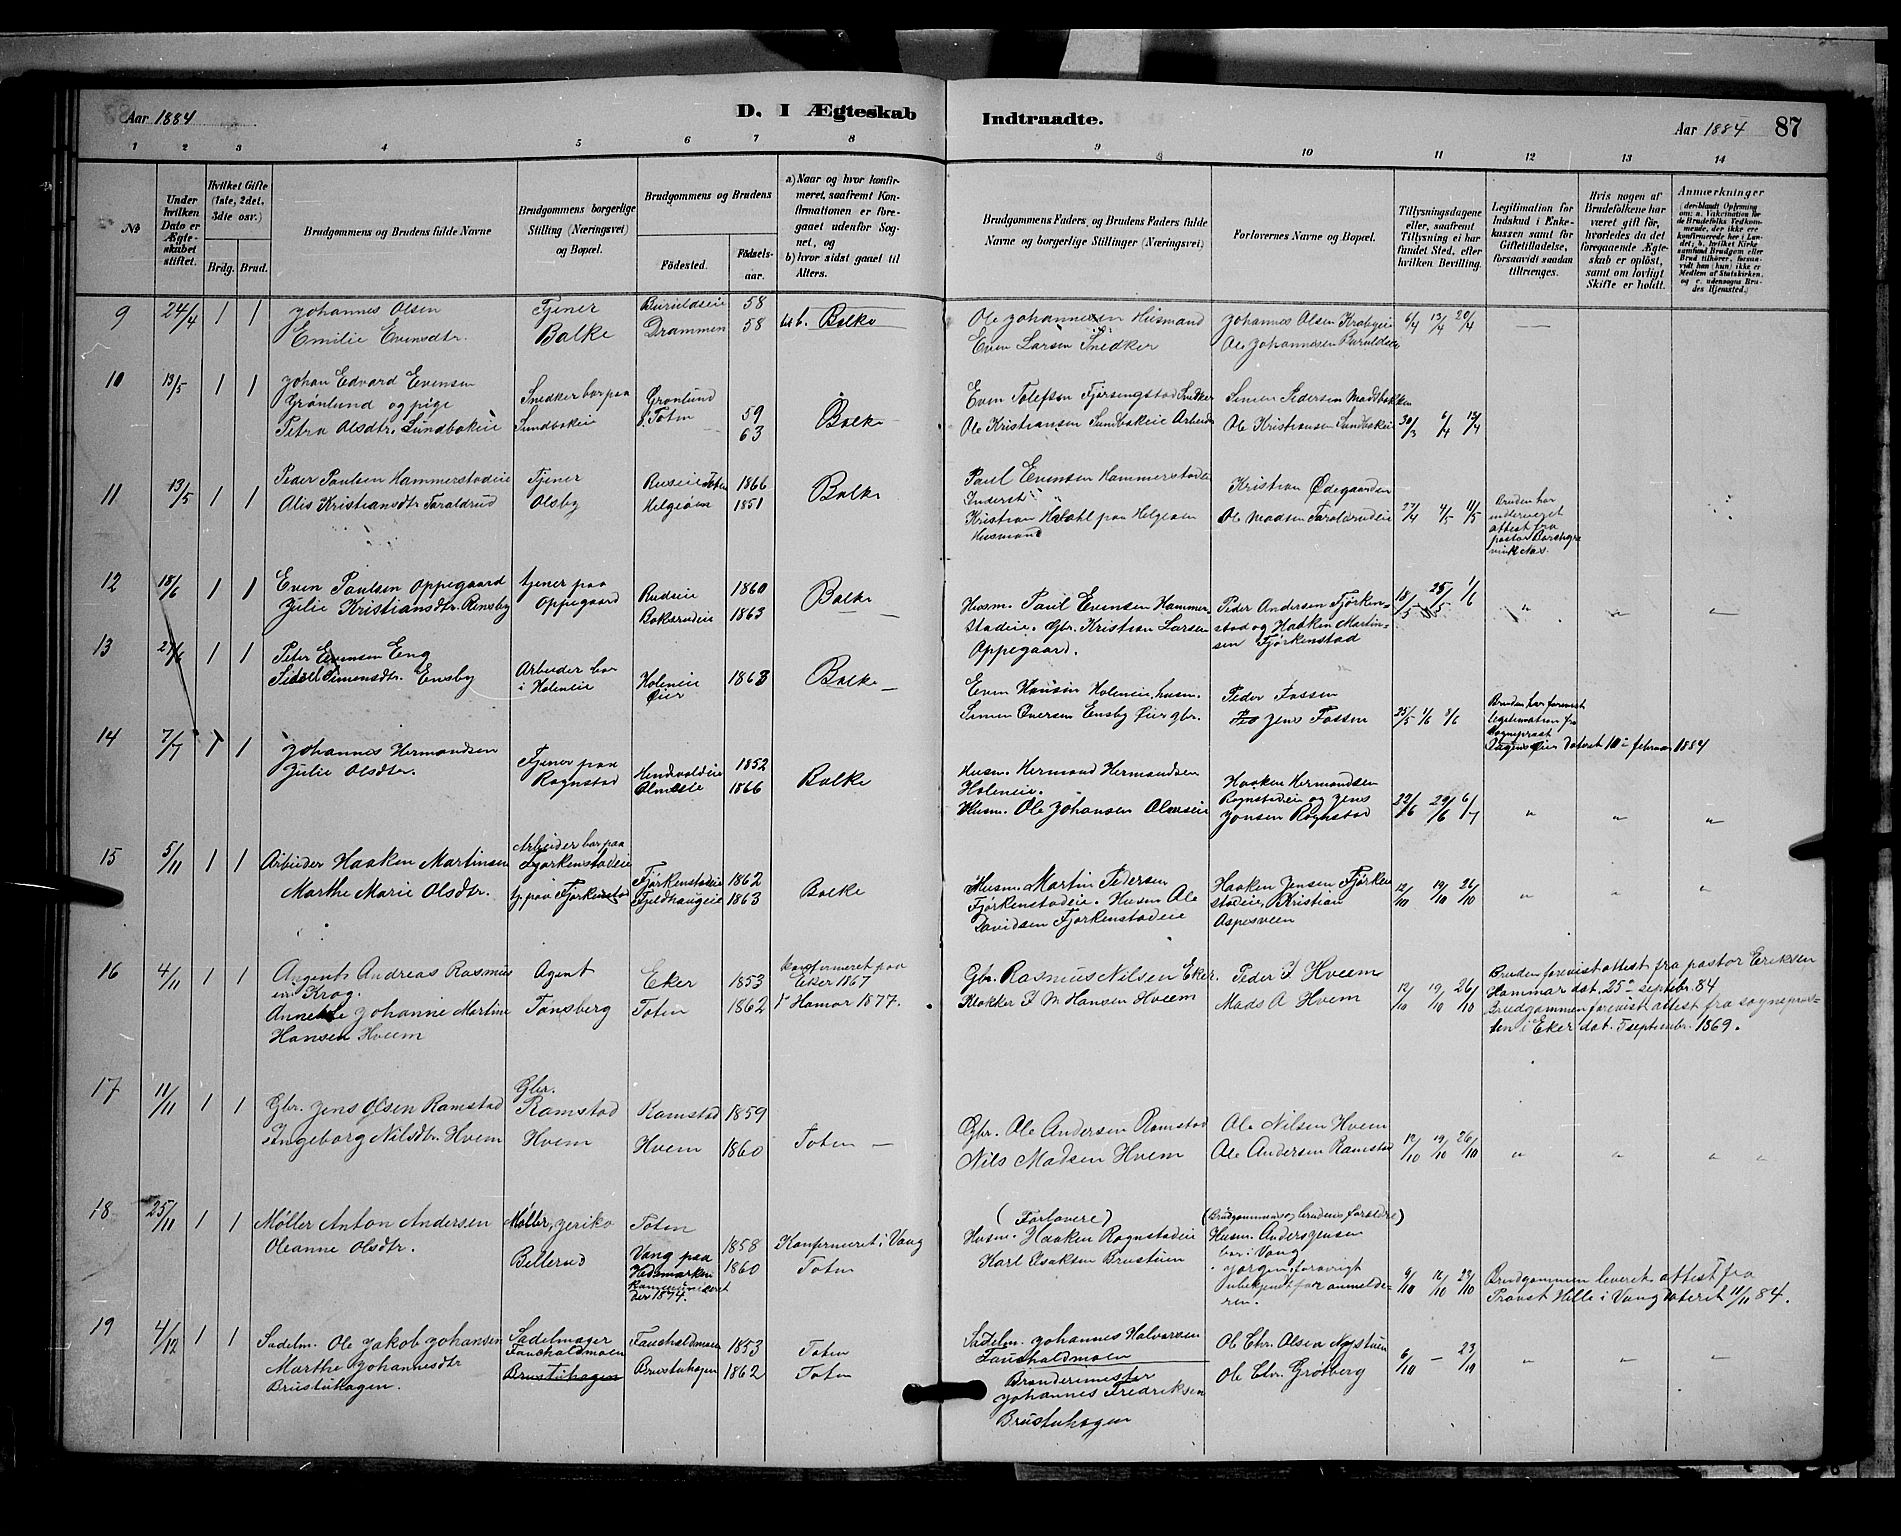 Aar 1884
D. I Ægteskab
Indtraadte.
Aar 1884
87
1 2 3 4 5 6 7 8 9 10 11 12 13 14
No
Under hvilken Dato er Ægteskabet stiftet.
Hvilket Gifte (1ste, 2det, 3die osv.)
Brdg. Brud.
Brudgommens og Brudens fulde Navne
Brudgommens borgerlige Stilling (Næringsvei) og Bopæl.
Brudgommens og Brudens
Fødested.
Fødselsaar.
a) Naar og hvor konfirmeret, saafremt Konfirmationen er foregaaet udenfor Sognet, og
b) hvor sidst gaaet til Alters.
Brudgommens Faders og Brudens Faders fulde Navne og borgerlige Stillinger (Næringsvei)
Forlovernes Navne og Bopæl.
Tillysningsdagene eller, saafremt Tillysning ei har fundet Sted, efter hvilken Bevilling.
Legitimation for Indskud i Enkekassen samt for Giftetilladelse, forsaavidt saadan tiltrænges.
Hvis nogen af Brudefolkene har været gift før, hvorledes da det foregaaende Ægteskab er opløst, samt om lovligt Skifte er holdt.
Anmærkninger
(deriblandt Oplysning om: a. Vakcination for de Brudefolks Vedkommende, der ikke ere konfirmerede her i Landet; b. hvilket Kirkesamfund Brudgom eller Brud tilhører, forsaavidt han (hun) ikke er Medlem af Statskirken, og c. udensogns Brudes Hjemsted.)
9 24/4 1 1 Johannes Olsen Tjener Buruldseie 58
Emilie Evensdtr. Balke Drammen 58 Balke
Ole Johannesen Husmand Johannes Olsen Krabyeie 6/4 13/4 20/4
Even Larsen Snedker Ole Johannesen Buruldseie
10 13/5 1 1 Johan Edvard Evensen
Grønlund og pige Snedker bor paa Grønlund
Petra Olsdtr. Sundbakeie Sundbakeie V. Toten 59 63 Balke
Even Tolefsen Fjørsingstad Snedker Simen Pedersen Maddbakken
Ole Kristiansen Sundbakeie Arbeider Ole Kristiansen Sundbakeie 30/3 6/4 13/4
11 13/5 1 1 Peder Paulsen Hammerstadeie Tjener Rueseie Toten 1866
Alis Kristiansdtr Taraldrud Olsby Helgeøen 1851 Balke
Paul Evensen Hammerstadeie
Inderst Kristian Ødegaarden
Kristian Hvahl paa Helgeøen Ole Madsen Taraldrudeie 27/4 4/5 11/5
Husmand
Bruden har undervejet attest fra pastor
12 18/6 1 1 Even Paulsen Oppegaard tjener paa Rudeie 1860
Julie Kristiansdtr. Rensby Oppegaard Bakerudeie 1863 Balke
Husm. Paul Evensen Hammer- Peder Andersen Fjørken- 18/5 25/5 1/6
stadeie. Gbr. Kristian Larsen stad og Haaken Martin-
Oppegaard. sen Fjørkenstad
13 27/6 1 1 Peter Evensen Eng
Sidsel Simensdtr. Ensby Arbeider bor i Holeneie Holeneie Øier 1863 Balke
Even Hansen Holeneie, husm. Peder Fossen
Simen Iversen Ensby Øier gbr. Jens Fossen 25/5 1/6 8/6
Bruden har forevist legitimation fra Sognepræst datert 10 februar 1884
14 7/7 1 1 Johannes Hermandsen
Julie Olsdtr. Tjener paa Rognstad 1852 1866 Balke
Husm. Hermand Hermandsen Haaken Hermandsen
Holeneie. Rognstadeie og Jens
Husm. Ole Johansen Jonsen Rognstad 22/6 29/6 6/7
15 5/11 1 1 Arbeider Haaken Martinsen Arbeider bor paa Fjørkenstadeie Fjørkenstadeie 1862
Marthe Marie Olsdtr. tj. paa Fjørkenstad Fjeldhaugeie 1863 Balke
Husm. Martin Pedersen Haaken Jensen Fjørken 12/10 19/10 26/10
Fjørkenstadeie. Husm Ole stadeie, Kristian
Davidsen Fjørkenstadeie Aspesveen
16 4/11 1 1 Angent Andreas Rasmus- Agent Eker 1853 konfirmeret paa Eker 1867
en Krog.
Annette Johanne Martine Tønsberg Toten 1862 i Hamar 1877.
Hansen Hveem
Gbr. Rasmus Nilsen Eker. Peder J Hveem
Klokker J. M Hansen Hveem Mads A Hvem 12/10 19/10 26/10
Bruden forevist attest fra pastor Eriksen
Hammar dat. 25de septbr. 84
Brudgommen forevist attest fra sognepræs-
ten i Eker dat. 5 septembr. 1869.
17 11/11 1 1 Gbr. Jens Olsen Ramstad Gbr. Ramstad Ramstad 1859
Ingeborg Nilsdtr. Hvem Hvem Hvem 1860 Toten
Gbr. Ole Andersen Ramstad Ole Nilsen Hvem
Nils Madsen Hvem Ole Andersen Ramstad 12/10 19/10 26/10
18 25/11 1 1 Møller Anton Andersen Møller, Jeriko Toten 1858 Konfirmeret i Vang
Oleanne Olsdtr. Billerud Vang paa Hedemarken 1860 Toten
(Forlovere) (Brudgommens og brudens forældre)
Husm. Haaken Rognstadeie Husm. Anders Jensen
Karl Isaksen Brustuen bor i Vang
Jørgen, forøvrigt ubekjendt for anmelderen. 9/10 16/10 23/10
Brudgommen leveret attest fra
Provst Hille i Vang dateret 11/11 84.
19 4/12 1 1 Sadelm. Ole Jakob Johansen Sadelmager Fauchaldmoen Fauchaldmoen 1853 Toten
Marthe Johannesdtr Brustuhagen Brustuhagen 1862 Toten
Brustuhagen.
Sadelm. Johannes Halvorsen Ole Chr. Olsen Nøjstuen
Fauchaldmoen Ole Chr. Grøtberg 6/10 – 23/10
Brønderimester
Johannes Fredriksen
Brustuhagen